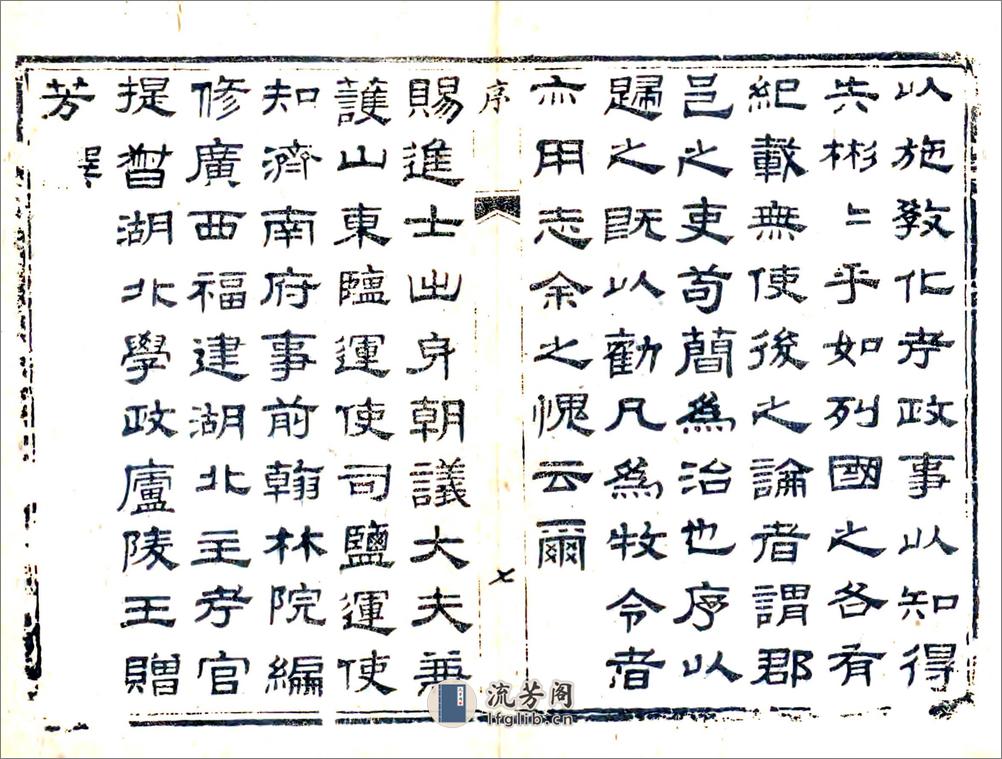 以施敎化考政事以知得
失彬彬乎如列國之各有
紀載無使後之論者謂郡
邑之吏苟簡爲治也序以
歸之旣以勸凡爲牧令者
亦用志余之愧云爾
序
七
賜進士出身朝議大夫兼
護山東鹽運使司鹽運使
知濟南府事前翰林院編
修廣西福建湖北主考官
提督湖北學政廬陵王贈
芳 譔
流芳阁
lfglib.cn